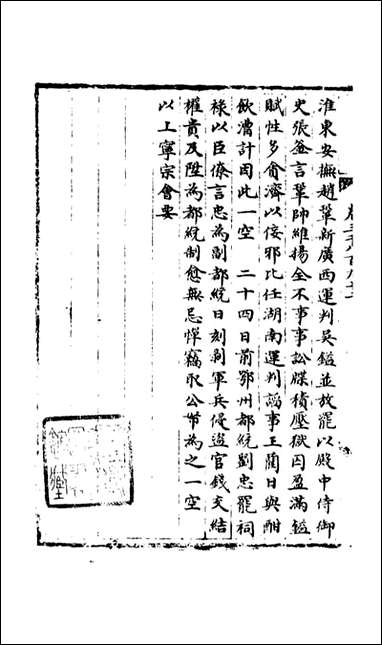 淮東安撫趙鞏新廣西運判吳鎰並放罷以殿中侍御
史張釜言鞏帥維揚全不事事訟牒積壓獄囚盈滿鎰
賦性多貪濟以佞邪比任湖南運判諂事王藺日與酣
飲漕計因此一空 二十四日前鄂州都統劉忠罷祠
祿以臣僚言忠為副都統日刻剝軍兵侵盜官錢交結
權貴及陞為都統制愈無忌憚竊取公帑為之一空
以上寧宗會要